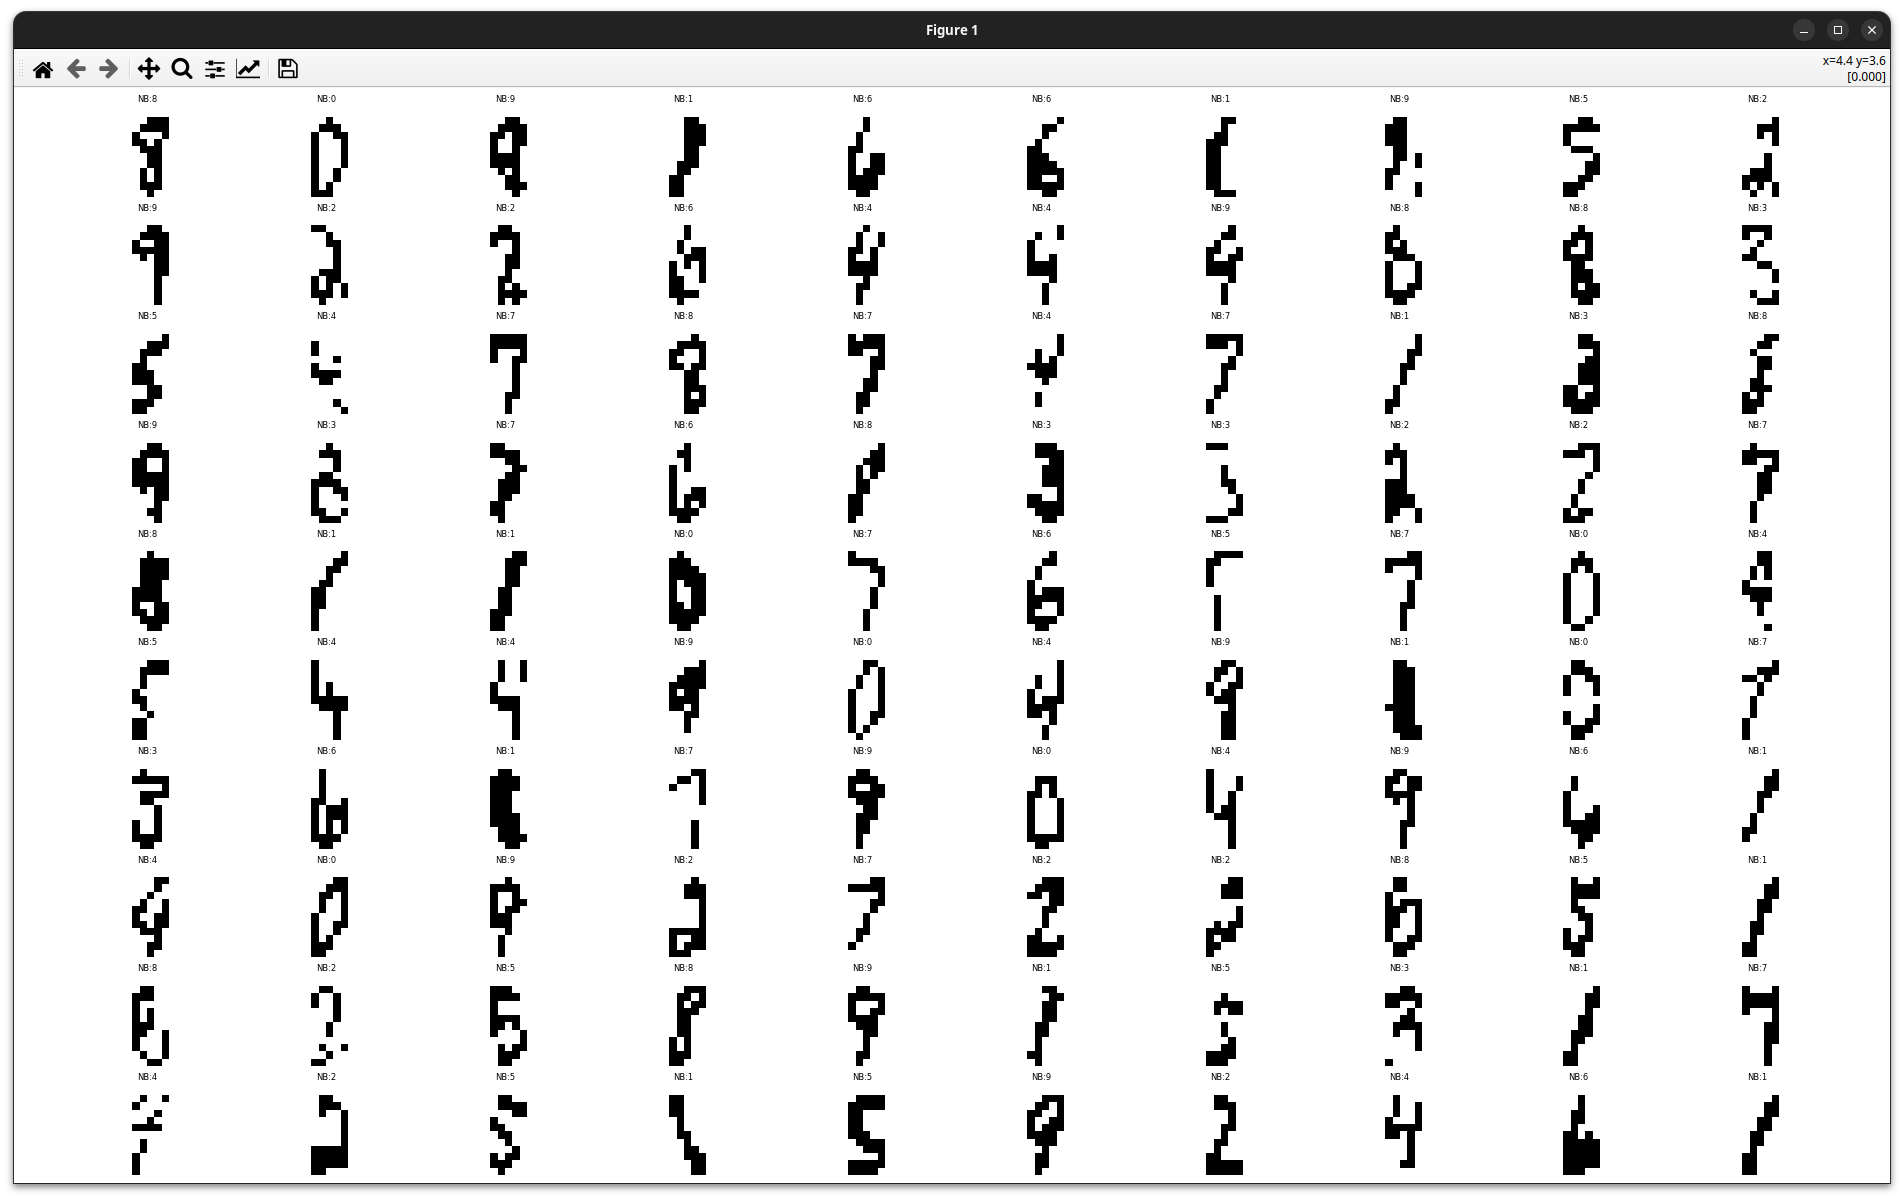 Figure 1
x=4.4 y=3.6
[0.000]
NB:8 NB:0 NB:9 NB:1 NB:6 NB:6 NB:1 NB:9 NB:5 NB:2
NB:9 NB:2 NB:2 NB:6 NB:4 NB:4 NB:9 NB:8 NB:8 NB:3
NB:5 NB:4 NB:7 NB:8 NB:7 NB:4 NB:7 NB:1 NB:3 NB:8
NB:9 NB:3 NB:7 NB:6 NB:8 NB:3 NB:3 NB:2 NB:2 NB:7
NB:8 NB:1 NB:1 NB:0 NB:7 NB:6 NB:5 NB:7 NB:0 NB:4
NB:5 NB:4 NB:4 NB:9 NB:0 NB:4 NB:9 NB:1 NB:0 NB:7
NB:3 NB:6 NB:1 NB:7 NB:9 NB:0 NB:4 NB:9 NB:6 NB:1
NB:4 NB:0 NB:9 NB:2 NB:7 NB:2 NB:2 NB:8 NB:5 NB:1
NB:8 NB:2 NB:5 NB:8 NB:9 NB:1 NB:5 NB:3 NB:1 NB:7
NB:4 NB:2 NB:5 NB:1 NB:5 NB:9 NB:2 NB:4 NB:6 NB:1